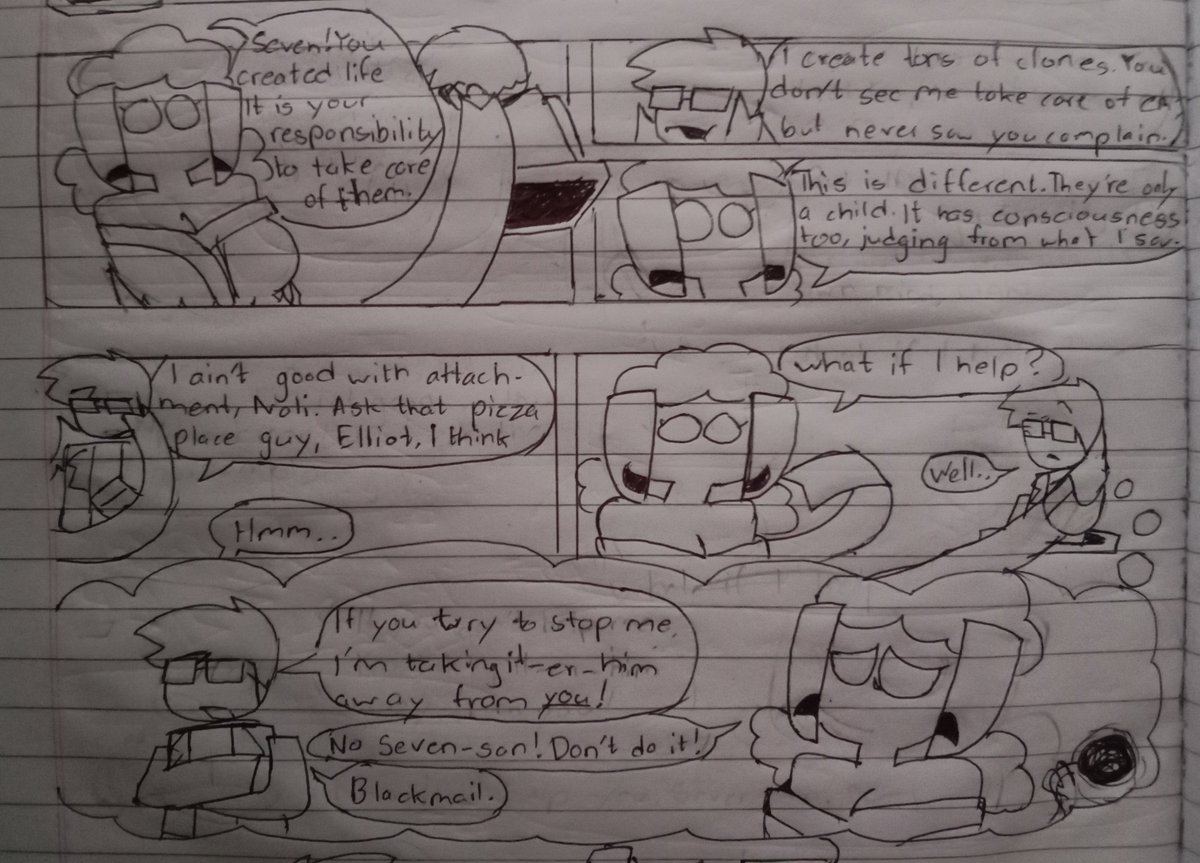 Seven! You
created life
It is your
responsibility
to take care
of them.
I create tons of clones. You
don't see me take care of
but never saw you complain.
This is different. They're only
a child. It has consciousness
too, judging from what I saw.
I ain't good with attach-
ment, Noli. Ask that pizza
place guy, Elliot, I think
Hmm..
what if I help?
Well..
If you try to stop me,
I'm taking it-er-him
away from you!
No Seven-san! Don't do it!
Blackmail.